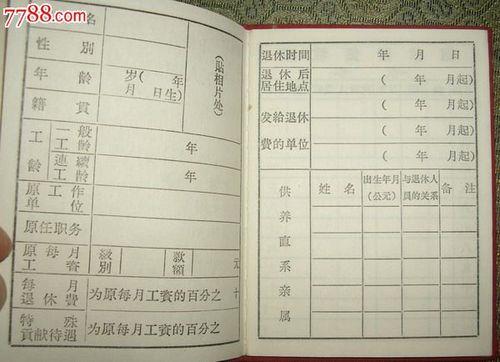 7788.com
名
性 别
年 龄
岁( 年
月 日生)
(贴相片处)
籍 贯
工 龄
一般工龄 年
连续工龄 年
原 工 作
单 位
原任职务
原 每 月
工 资
级别
款额
元
每 月
退 休 费
为原每月工资的百分之 十
特 殊
贡献待遇
为原每月工资的百分之
退休时间 年 月 日
退 休 后
居住地点
( 年 月起)
( 年 月起)
发给退休
费的单位
( 年 月起)
( 年 月起)
供养直系亲属
姓 名
出生年月
(公元)
与退休人
员的关系
备 注